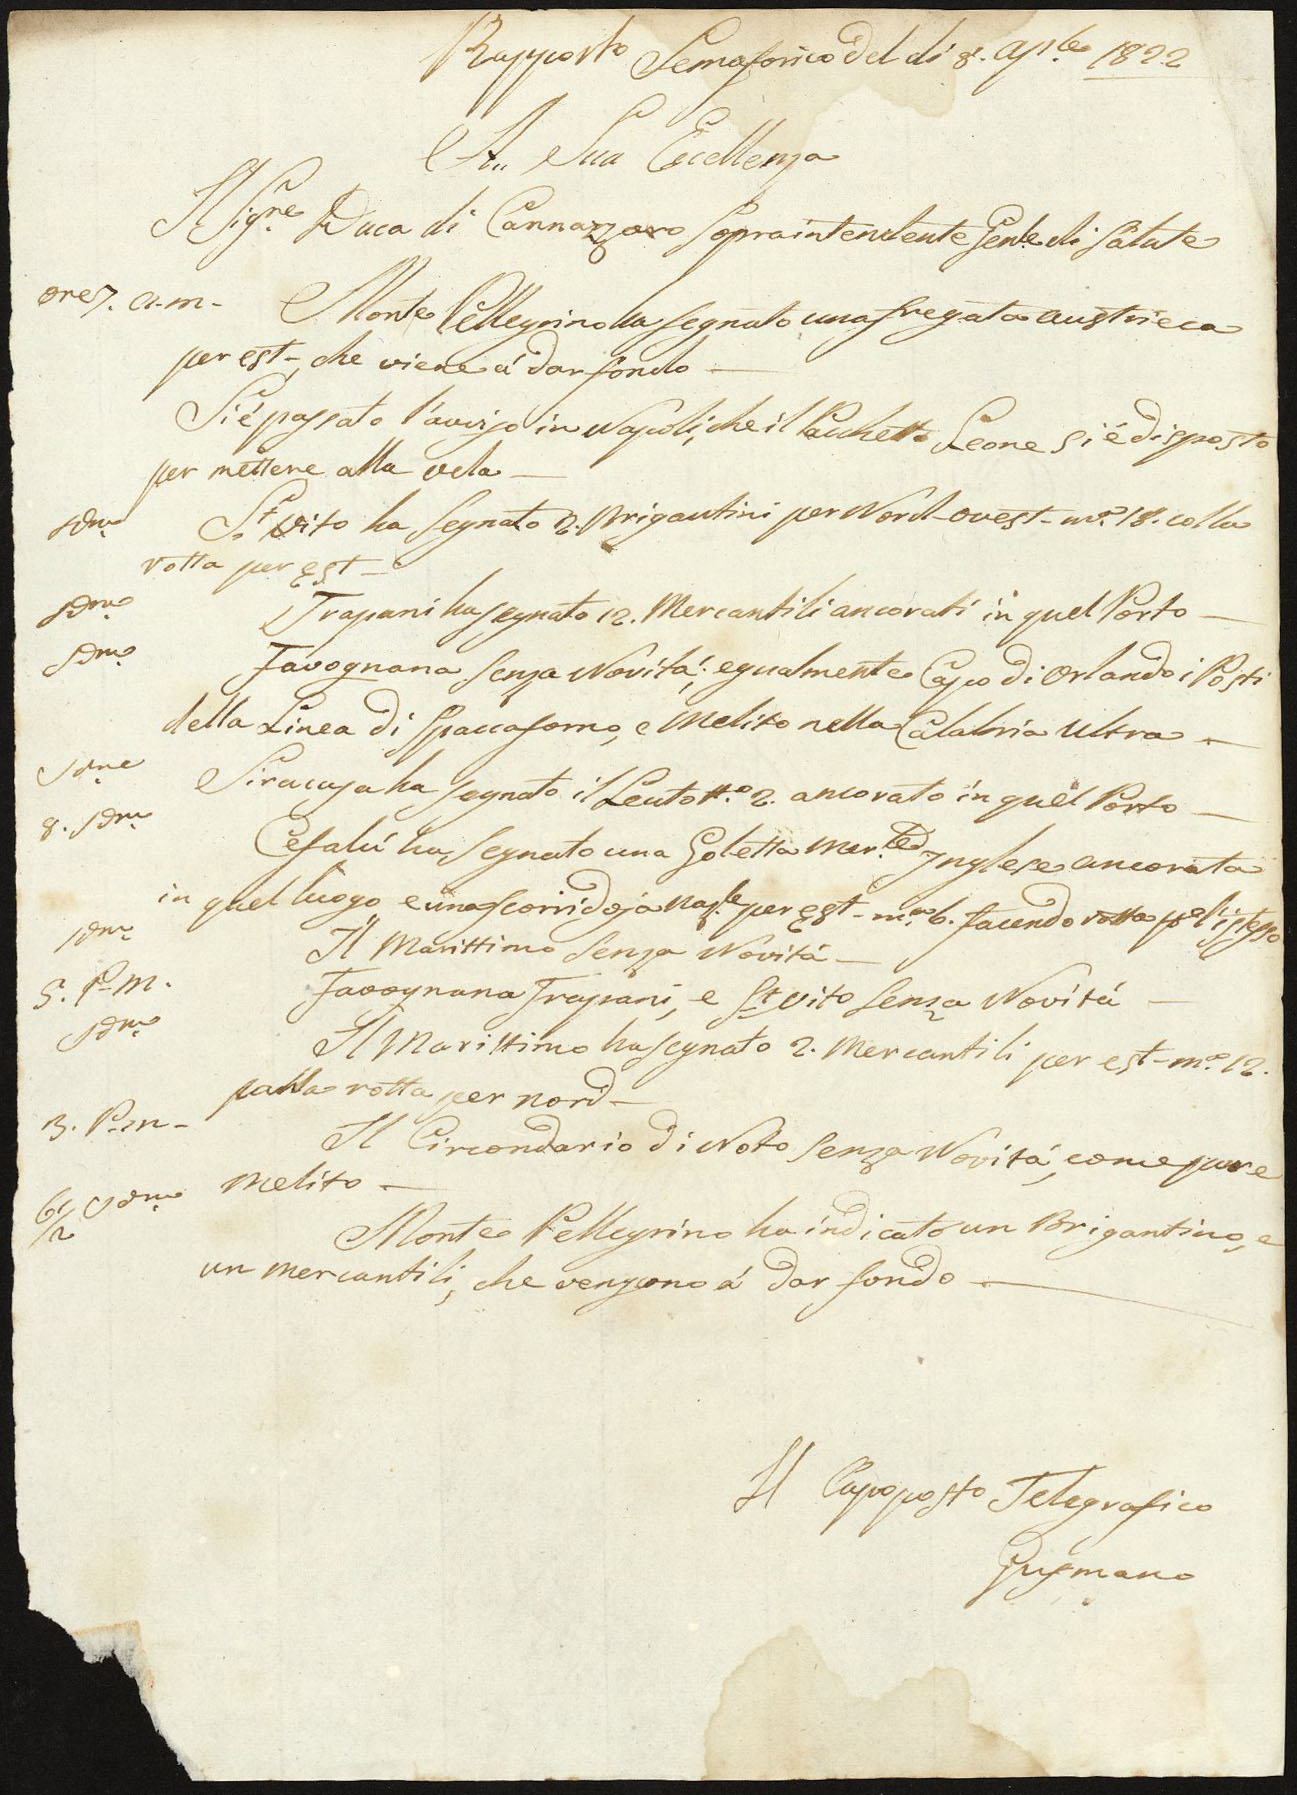 Rapporto Semaforico del dí 8. Ap.le 1822
A Sua Eccellenza
Il Sig.re Duca di Cannazzaro Sopraintendente Gen.le di Salute
ore 7. a.m. Monte Pellegrino ha segnato una fregata austrieca
per est, che viene á dar fondo
Si é passato l'avviso in Napoli, che il Pacchetto Leone si é disposto
per mettere alla vela
Idm. S.t Vito ha segnato 2. Brigantini per Nord-ovest - m.a 18. colla
rotta per est
Idm. Trapani ha segnato 12. Mercantili ancorati in quel Porto
Idm. Favognana senza Novitá; egualmente Capo di Orlando i Posti
della Linea di Spaccaforno, e Melito nella Calabria Ultra
Idme Siracusa ha segnato il Leuto n.o 2. ancorato in quel Porto
8. Idm. Cefalú ha segnato una Goletta Mer.le Inglese ancorata
in quel luogo e una scorridoja Nap.le per est - m.a 6. facendo rotta pel istesso
Idm. Il Marittimo senza Novitá
5. P.m. Favognana Trapani, e S.t Vito senza Novitá
Idm. Il Marittimo ha segnato 2. Mercantili per est - m.a 12.
colla rotta per nord
3. P.m. Il Circondario di Noto senza Novitá, come pure
Melito
6 1/2 Idm. Monte Pellegrino ha indicato un Brigantino, e
un mercantili, che vengono á dar fondo
Il Capoposto Telegrafico
Gusmano